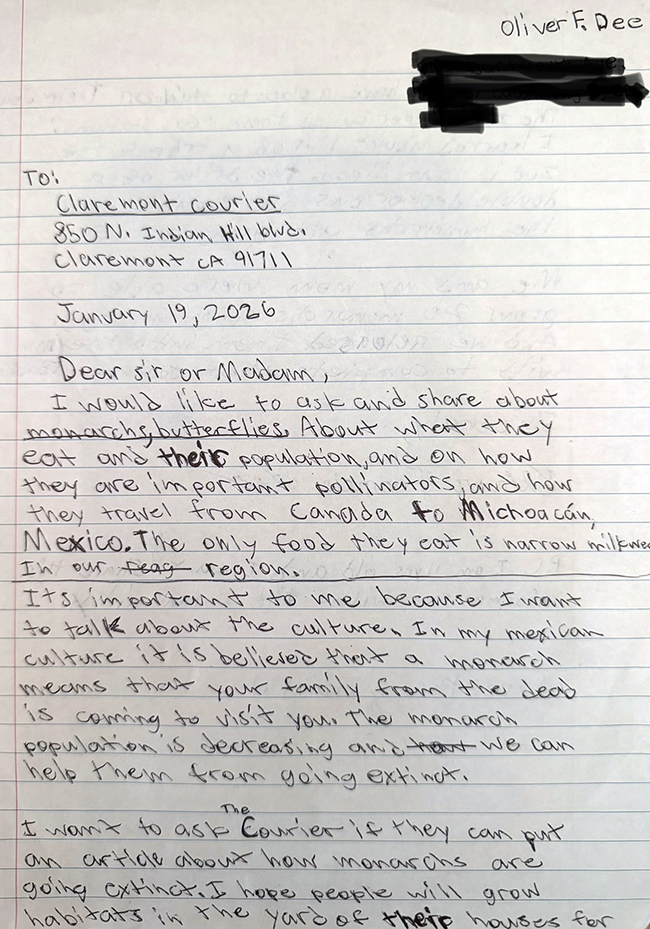 Oliver F. Dee
To:
Claremont Courier
850 N. Indian Hill blvd.
Claremont CA 91711
January 19, 2026
Dear sir or Madam,
I would like to ask and share about
monarchs butterflies. About what they
eat and their population, and on how
they are important pollinators, and how
they travel from Canada to Michoacán,
Mexico. The only food they eat is narrow milkwee
In our region.
It's important to me because I want
to talk about the culture. In my mexican
culture it is believed that a monarch
means that your family from the dead
is coming to visit you. The monarch
population is decreasing and we can
help them from going extinct.
I want to ask The Courier if they can put
an article about how monarchs are
going extinct. I hope people will grow
habitats in the yard of their houses for